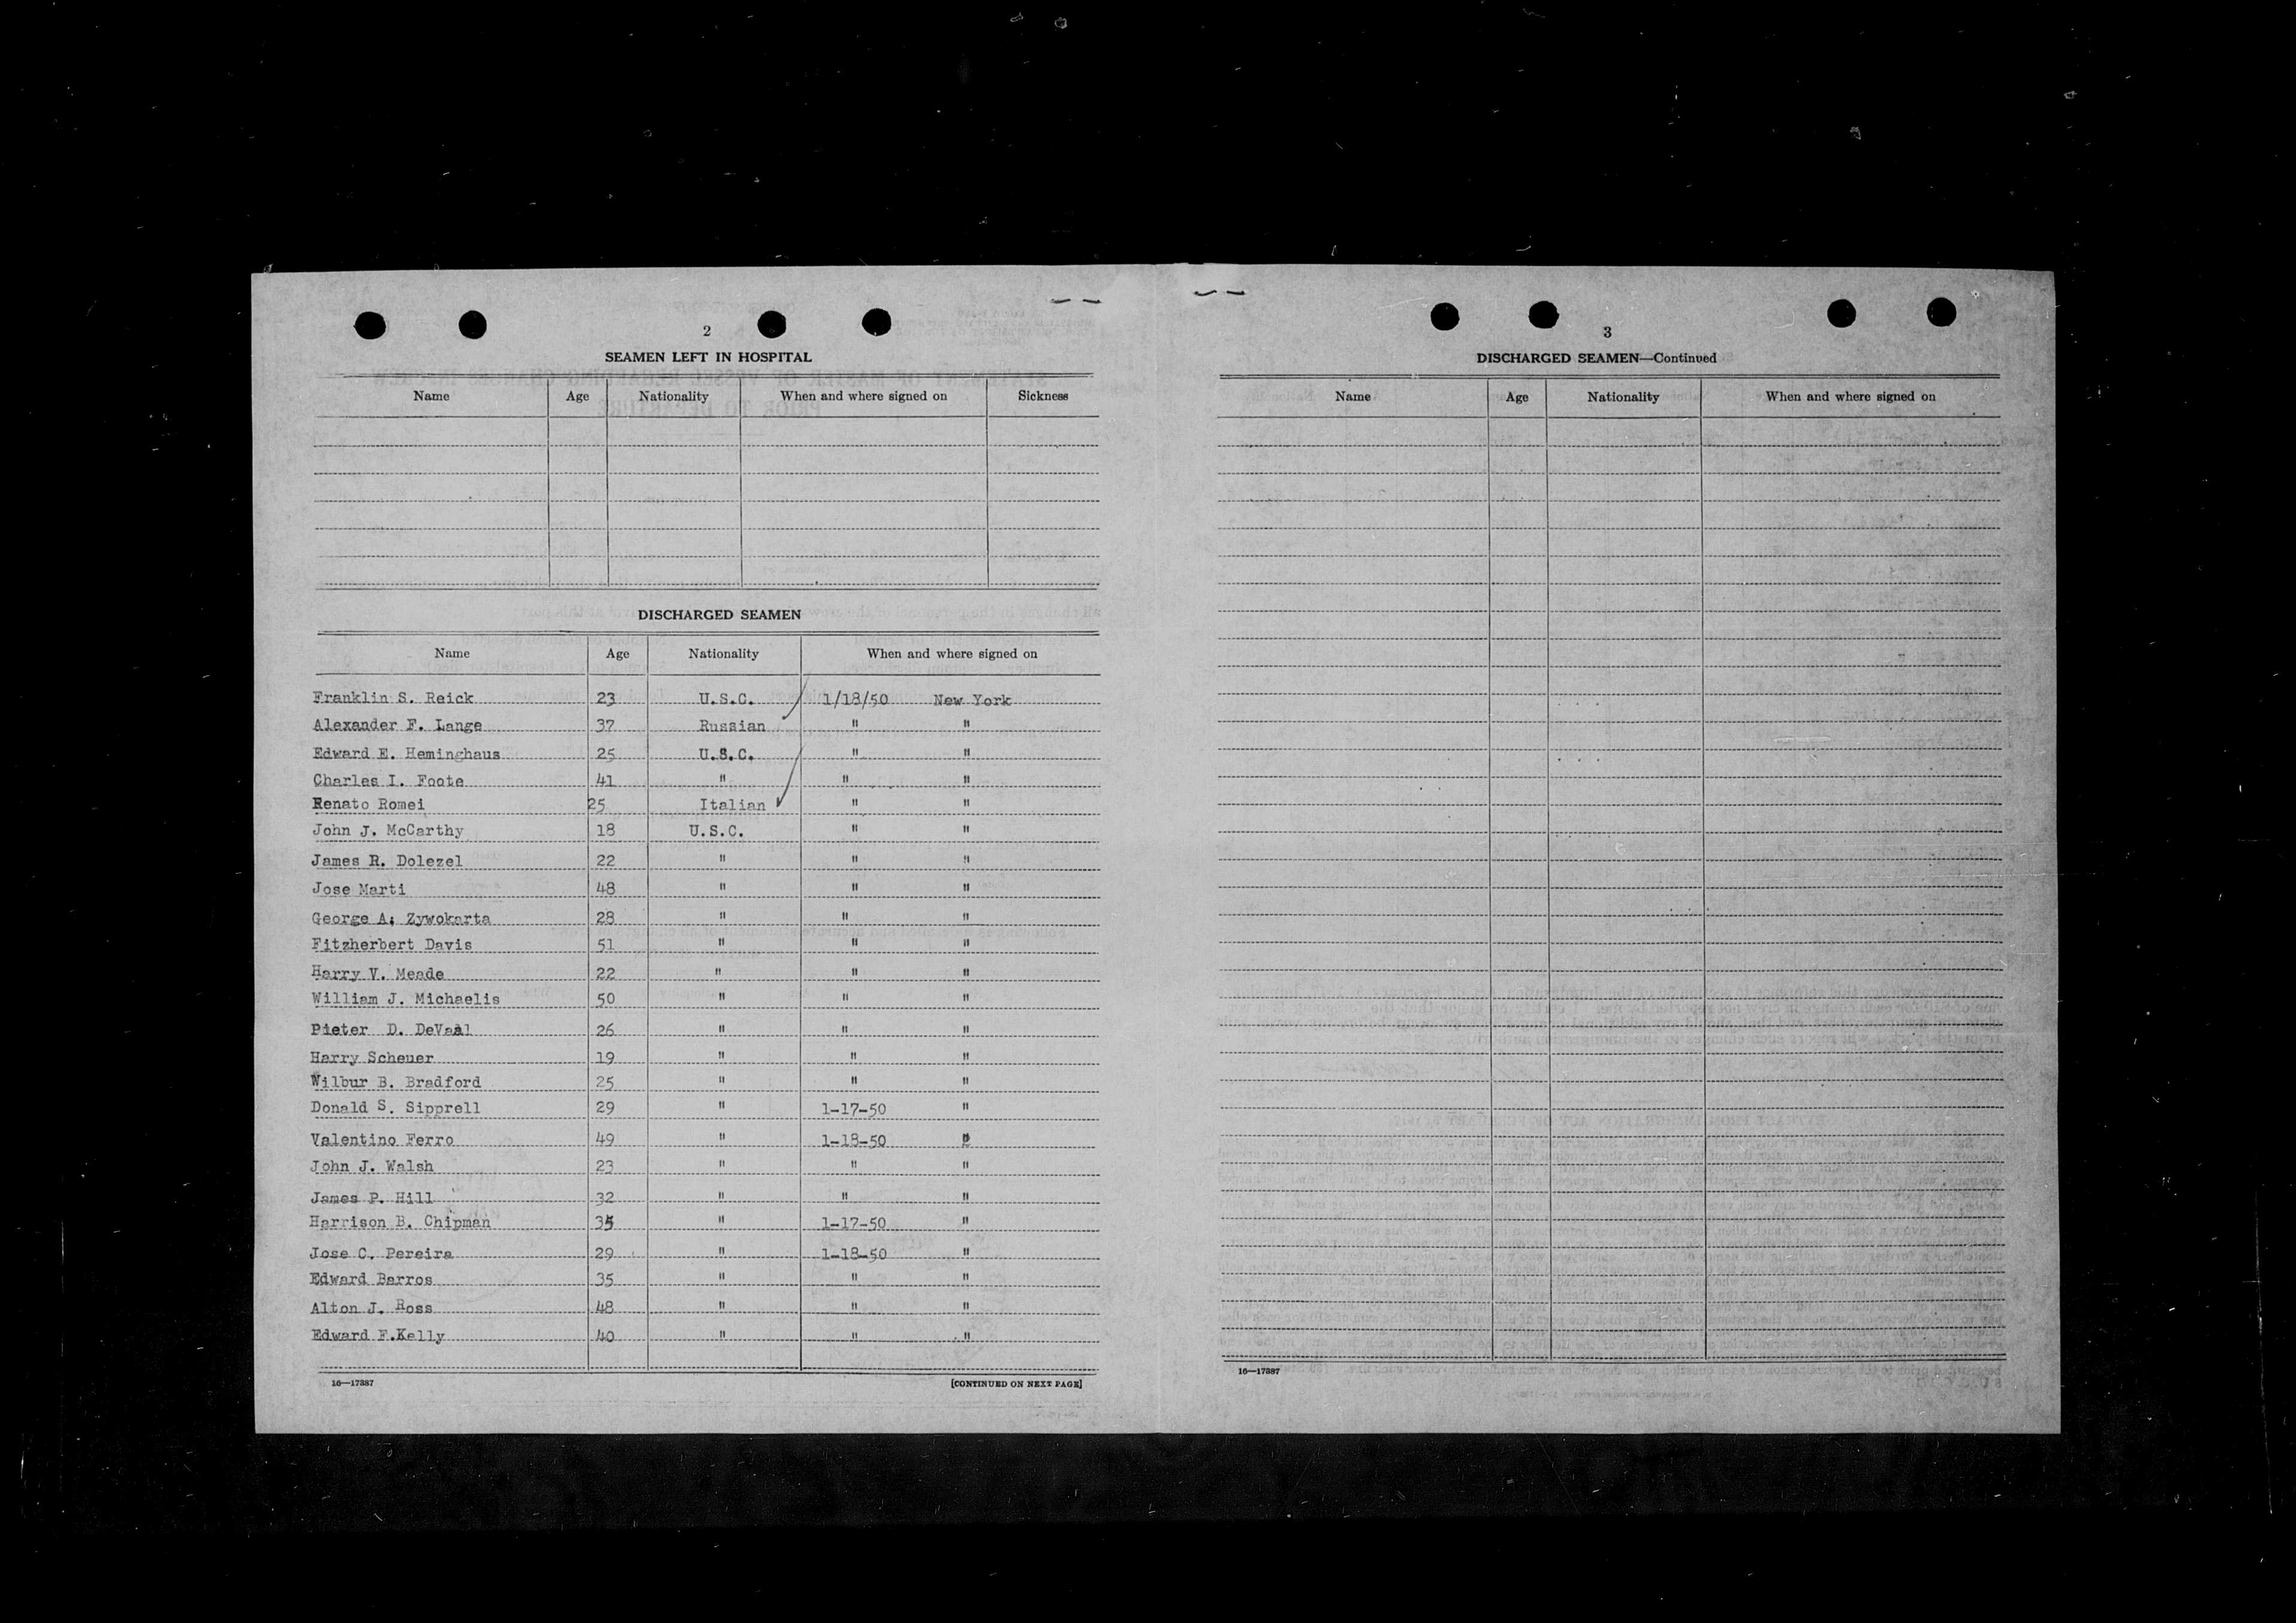 2
SEAMEN LEFT IN HOSPITAL
Name Age Nationality When and where signed on Sickness
DISCHARGED SEAMEN
Name Age Nationality When and where signed on
Franklin S. Reick 23 U.S.C. 1/18/50 New York
Alexander F. Lange 37 Russian " "
Edward E. Heminghaus 25 U.S.C. " "
Charles I. Foote 41 " " "
Renato Romei 25 Italian " "
John J. McCarthy 18 U.S.C. " "
James R. Dolezel 22 " " "
Jose Marti 48 " " "
George A. Zywokarta 28 " " "
Fitzherbert Davis 51 " " "
Harry V. Meade 22 " " "
William J. Michaelis 50 " " "
Pieter D. DeVaal 26 " " "
Harry Scheuer 19 " " "
Wilbur B. Bradford 25 " " "
Donald S. Sipprell 29 " 1-17-50 "
Valentino Ferro 49 " 1-18-50 "
John J. Walsh 23 " " "
James P. Hill 32 " " "
Harrison B. Chipman 35 " 1-17-50 "
Jose C. Pereira 29 " 1-18-50 "
Edward Barros 35 " " "
Alton J. Ross 48 " " "
Edward F.Kelly 40 " " "
16—17387
[CONTINUED ON NEXT PAGE]
3
DISCHARGED SEAMEN—Continued
Name Age Nationality When and where signed on
16—17387